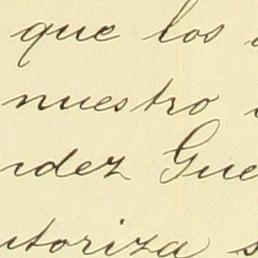 que los
nuestro
ndez Gue
utoriza s